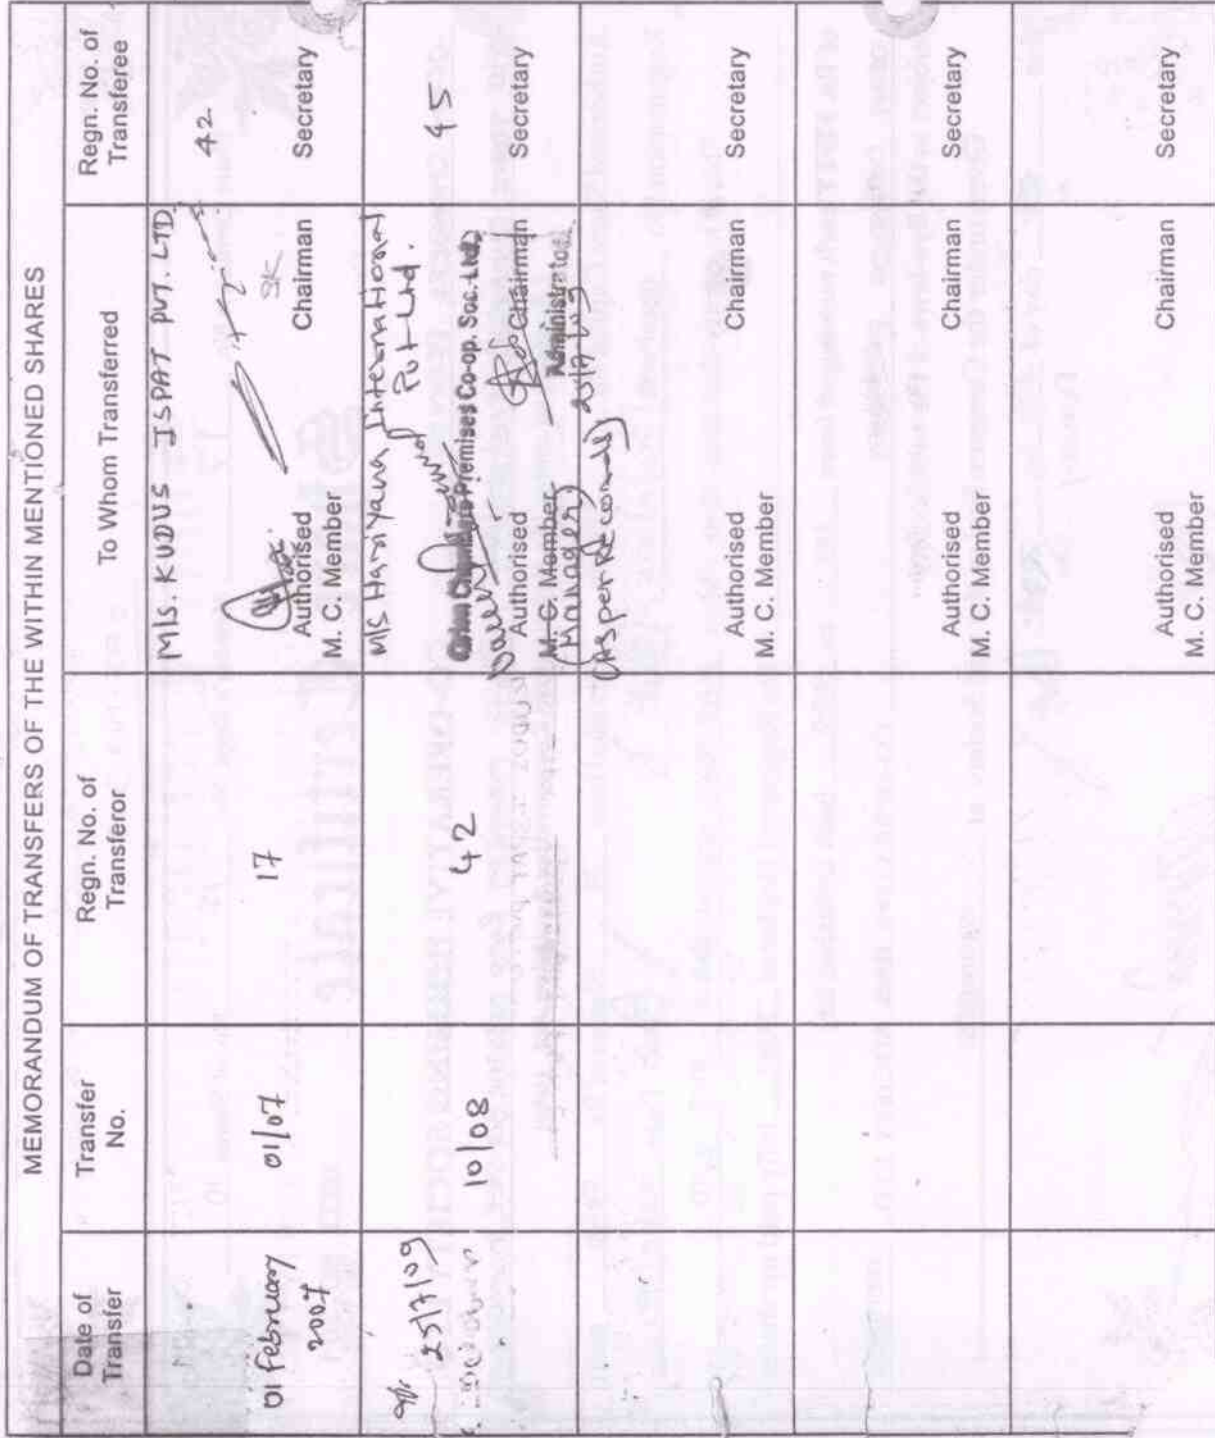 MEMORANDUM OF TRANSFERS OF THE WITHIN MENTIONED SHARES
Date of Transfer
Transfer No.
Regn. No. of Transferor
To Whom Transferred
Regn. No. of Transferee
01 February 2007
01/07
17
M/s. KUDUS ISPAT PVT. LTD.
42
SK
Authorised M. C. Member
Chairman
Secretary
25/7/09
10/08
42
M/s Hariyana International Pvt Ltd.
45
Premises Co-op. Soc. Ltd.
Authorised M. C. Member
Chairman
Secretary
Administrator
(Manager)
(As per Records)
Authorised M. C. Member
Chairman
Secretary
Authorised M. C. Member
Chairman
Secretary
Authorised M. C. Member
Chairman
Secretary